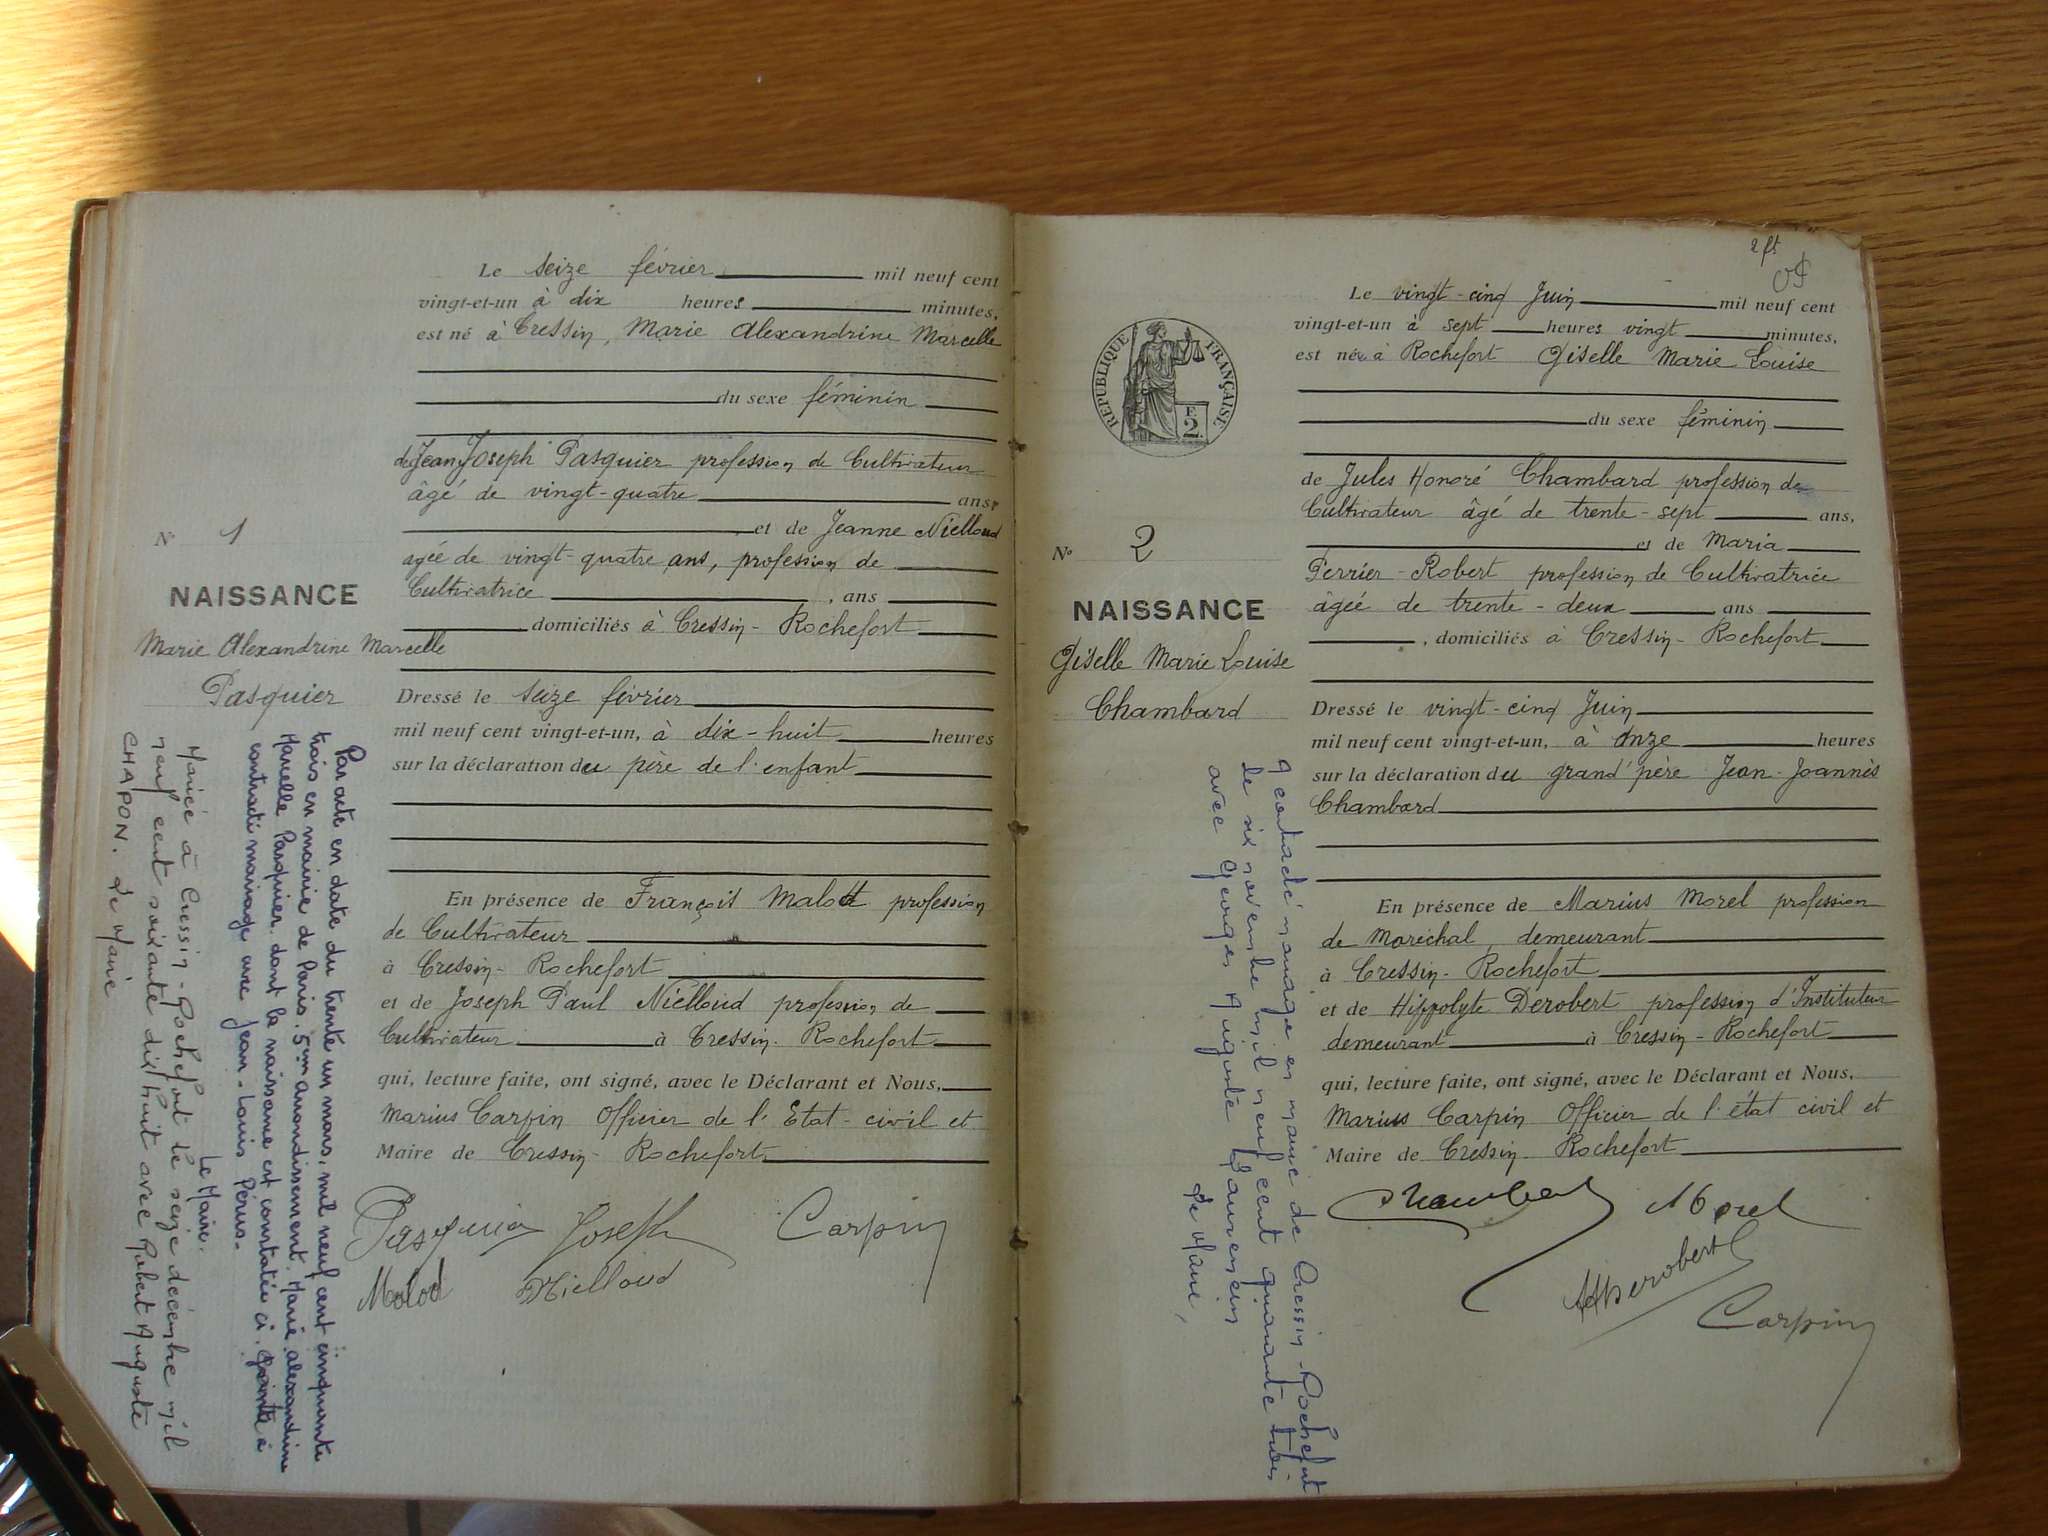 Le seize février mil neuf cent
vingt-et-un à dix heures minutes,
est né à Cressin, Marie Alexandrine Marcelle
du sexe féminin
de Jean Joseph Pasquier profession de Cultivateur
âgé de vingt-quatre ans,
et de Jeanne Niélloud
agée de vingt-quatre ans, profession de
Cultivatrice , ans
domiciliés à Cressin-Rochefort
N° 1
NAISSANCE
Marie Alexandrine Marcelle
Pasquier
Dressé le seize février
mil neuf cent vingt-et-un, à dix-huit heures
sur la déclaration du père de l'enfant
En présence de François Malod profession
de Cultivateur
à Cressin-Rochefort
et de Joseph Paul Niélloud profession de
Cultivateur à Cressin-Rochefort
qui, lecture faite, ont signé, avec le Déclarant et Nous,
Marius Carpin Officier de l'Etat-civil et
Maire de Cressin-Rochefort
Pasquier Joseph Carpin
Malod Niélloud
Par acte en date du trente un mars, mil neuf cent cinquante
trois en mairie de Paris. 5me arrondissement. Marie Alexandrine
Marcelle Pasquier. dont la naissance est constatée ci-contre à
contracté mariage avec Jean-Louis Pérus.
Le Maire.
Mariée à Cressin-Rochefort le seize décembre mil
neuf cent soixante dix huit avec Robert Auguste
CHAPON. Le Maire
2 ft
Le vingt-cinq Juin mil neuf cent
vingt-et-un à sept heures vingt minutes,
est née à Rochefort Giselle Marie Louise
du sexe féminin
RÉPUBLIQUE FRANÇAISE
F.
2
de Jules Honoré Chambard profession de
Cultivateur âgé de trente-sept ans,
et de Maria
Perrier-Robert profession de Cultivatrice
âgeé de trente-deux ans
, domiciliés à Cressin-Rochefort
N° 2
NAISSANCE
Giselle Marie Louise
Chambard
Dressé le vingt-cinq Juin
mil neuf cent vingt-et-un, à onze heures
sur la déclaration du grand'père Jean-Joannès
Chambard
En présence de Marius Morel profession
de Maréchal, demeurant
à Cressin-Rochefort
et de Hippolyte Derobert profession d'Instituteur
demeurant à Cressin-Rochefort
qui, lecture faite, ont signé, avec le Déclarant et Nous,
Marius Carpin Officier de l'état civil et
Maire de Cressin-Rochefort
Chambard Morel
HDerobert
Carpin
A contracté mariage en mairie de Cressin-Rochefort
le six novembre mil neuf cent quarante trois
avec Georges Auguste
Le Maire,